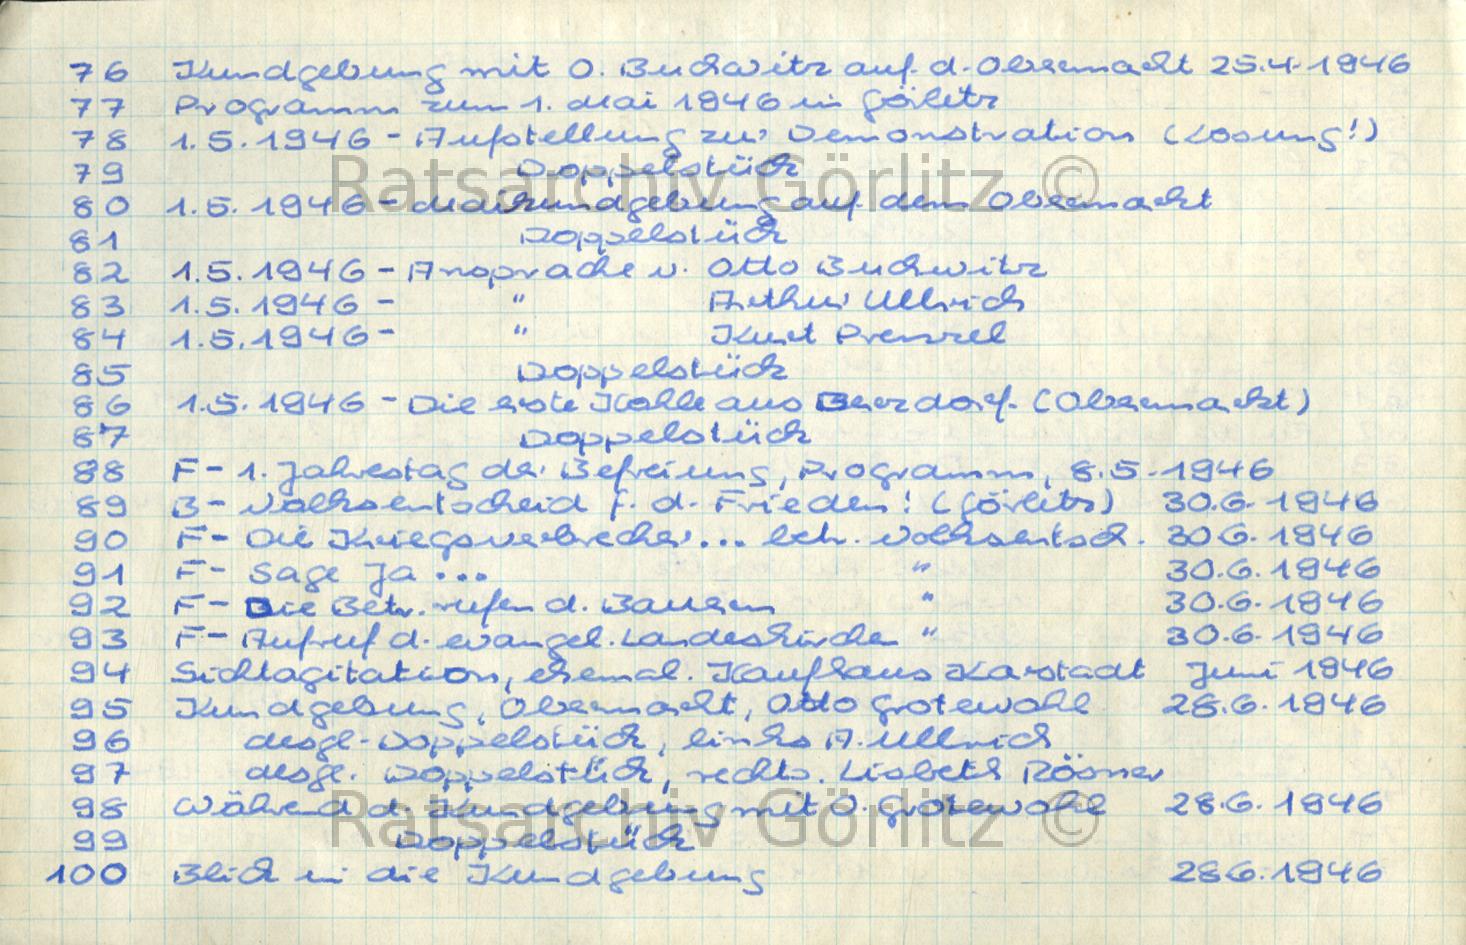 76 Kundgebung mit O. Buchwitz auf d. Obermarkt 25.4.1946
77 Programm zum 1. Mai 1946 in Görlitz
78 1.5.1946 - Aufstellung zur Demonstration (Losung!)
79 Doppelstück
Ratsarchiv Görlitz ©
80 1.5.1946 - Maikundgebung auf dem Obermarkt
81 Doppelstück
82 1.5.1946 - Ansprache v. Otto Buchwitz
83 1.5.1946 - " Arthur Ullrich
84 1.5.1946 - " Kurt Prenzel
85 Doppelstück
86 1.5.1946 - Die erste Kohle aus Berzdorf. (Obermarkt)
87 Doppelstück
88 F - 1. Jahrestag der Befreiung, Programm, 8.5.1946
89 B - Volksentscheid f. d. Frieden! (Görlitz) 30.6.1946
90 F - Die Kriegsverbrecher... betr. Volksentsch. 30.6.1946
91 F - Sage Ja ... " 30.6.1946
92 F - Die Betr. rufen d. Bauern " 30.6.1946
93 F - Aufruf d. evangel. Landeskirche " 30.6.1946
94 Sichtagitation, ehemal. Kaufhaus Karstadt Juni 1946
95 Kundgebung, Obermarkt, Otto Grotewohl 28.6.1946
96 desgl. Doppelstück, links A. Ullrich
97 desgl. Doppelstück, rechts. Lisbeth Rösner
98 Während d. Kundgebung mit O. Grotewohl 28.6.1946
Ratsarchiv Görlitz ©
99 Doppelstück
100 Blick in die Kundgebung 28.6.1946